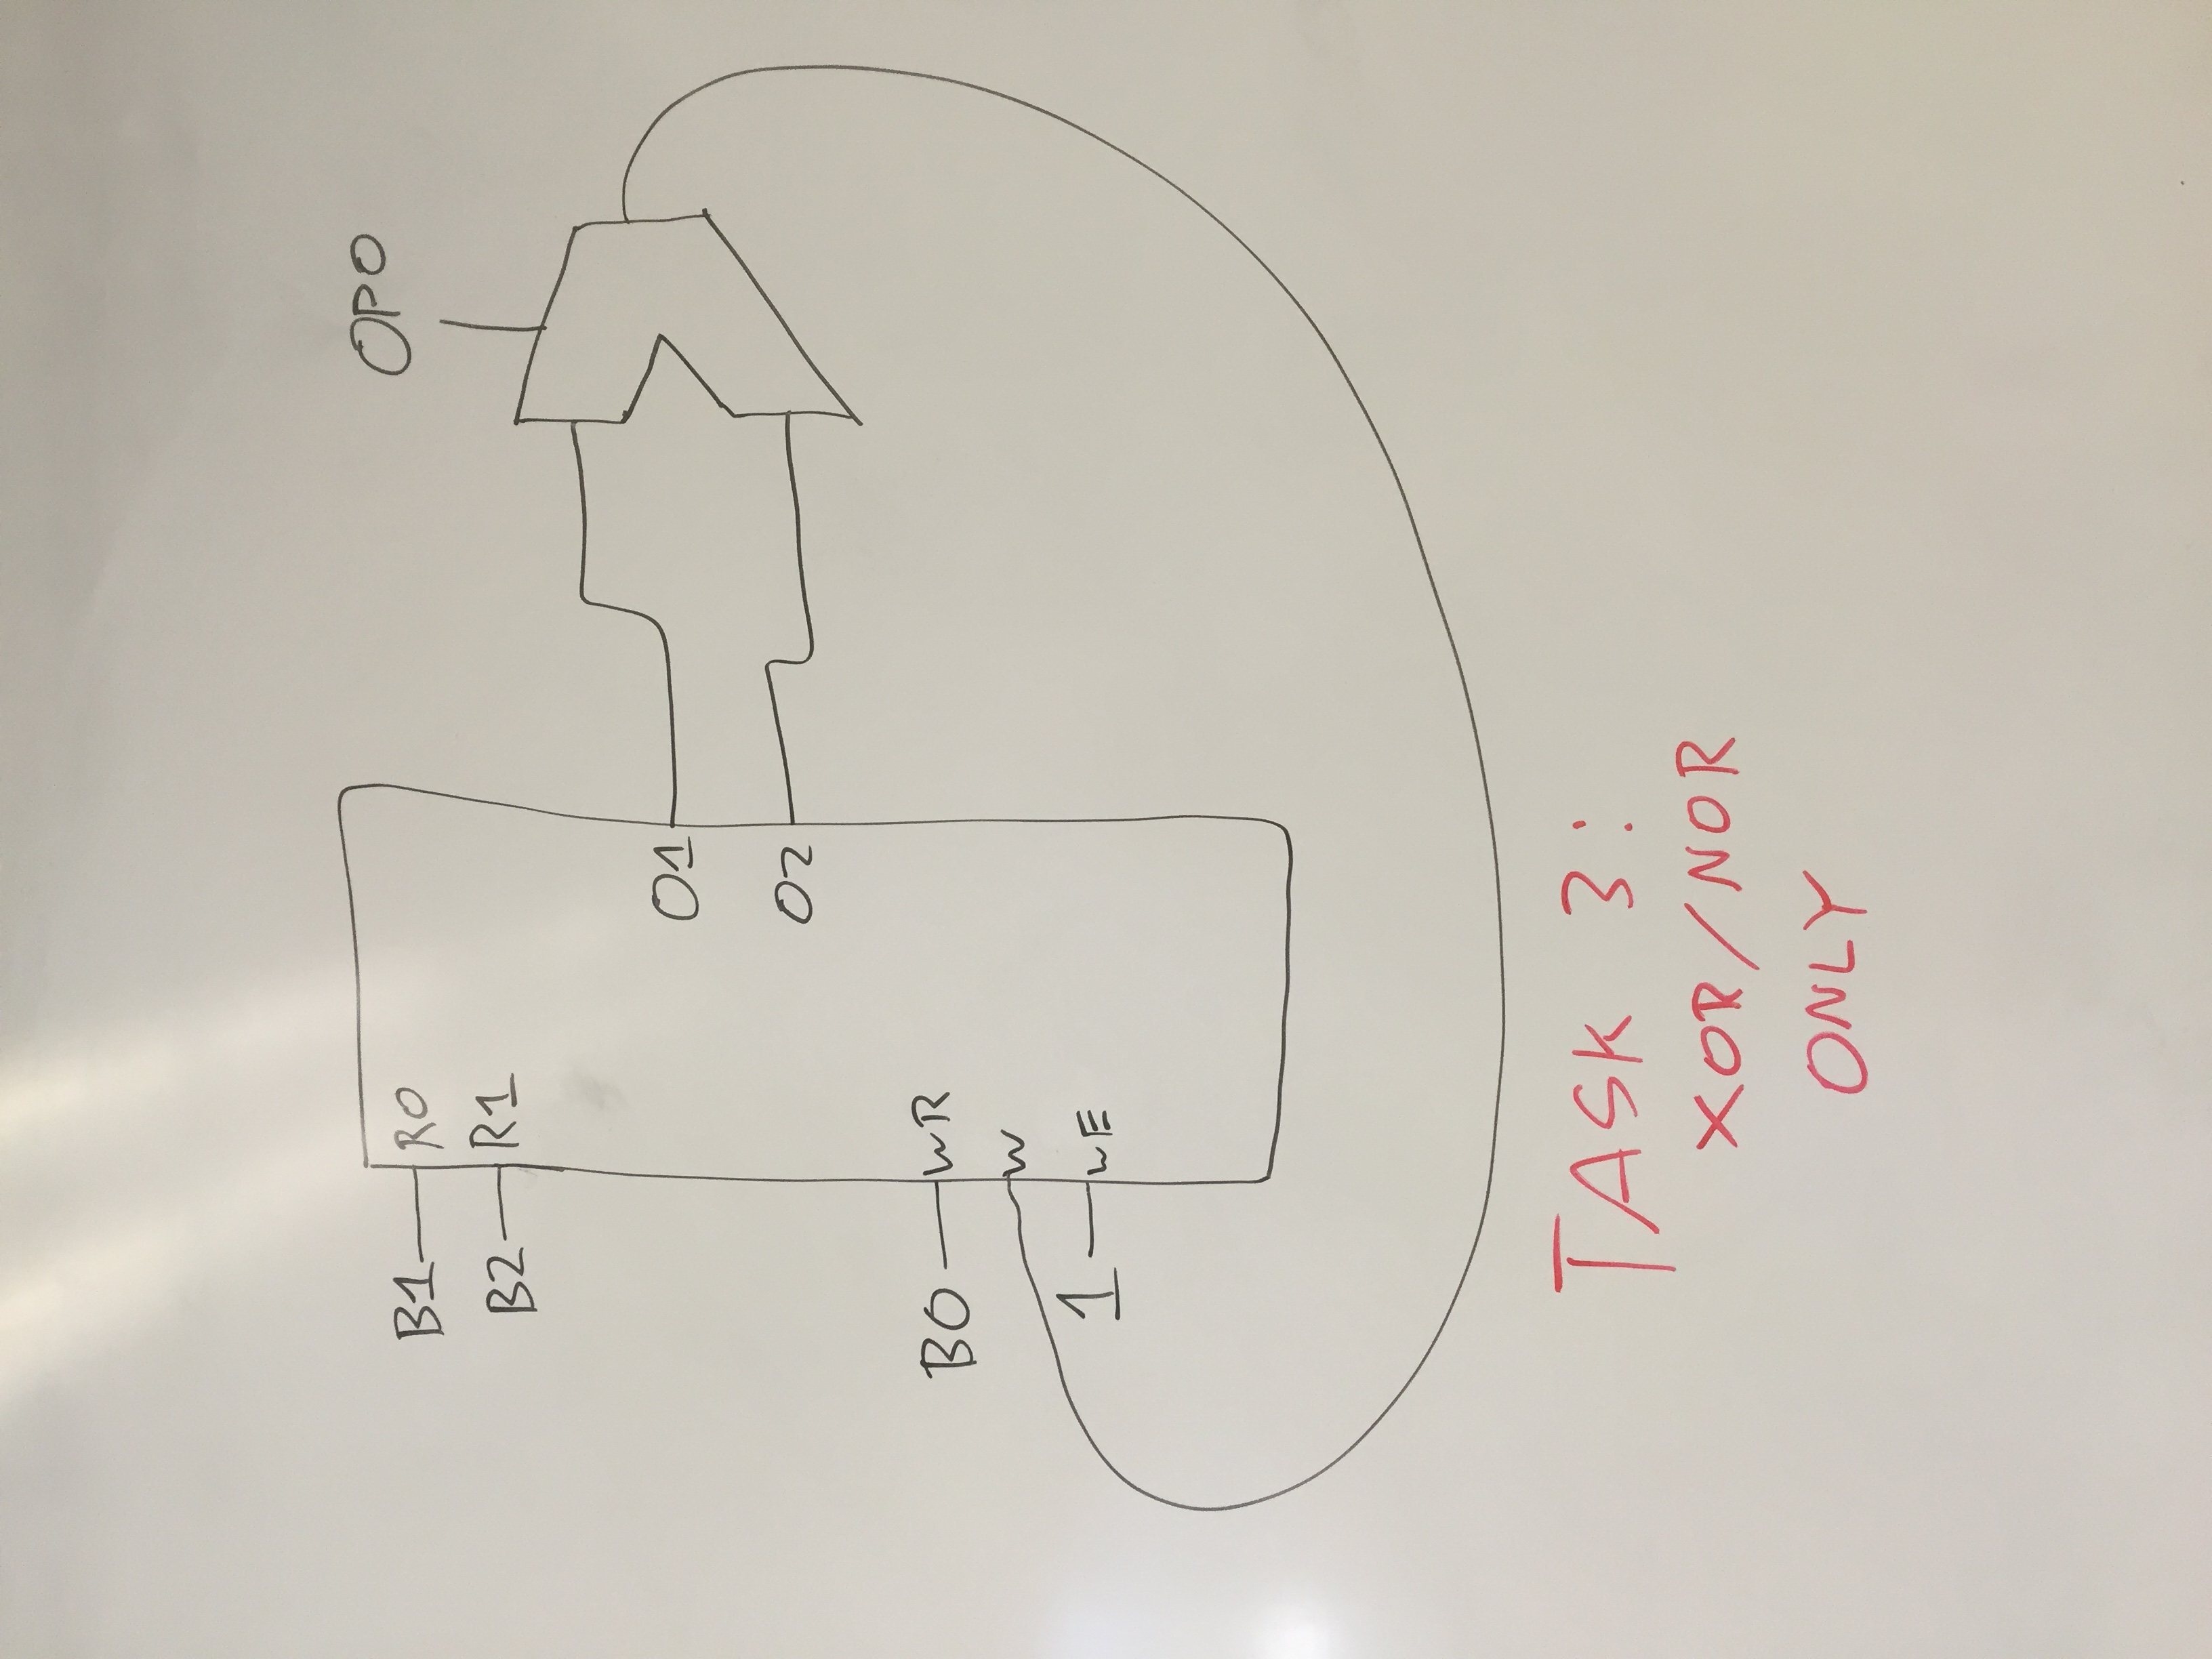 OP0
B1 R0
B2 R1
O1
O2
B0 WR
W
1 WE
TASK 3:
XOR/NOR
ONLY